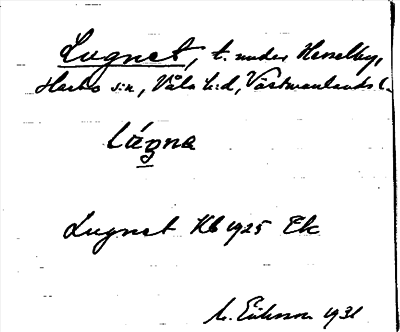 Lugnet, t. under Hesselby,
Harbo s:n, Våla h:d, Västmanlands l.
Lugnet Kb 1925 Ek
M. Eriksson 1931